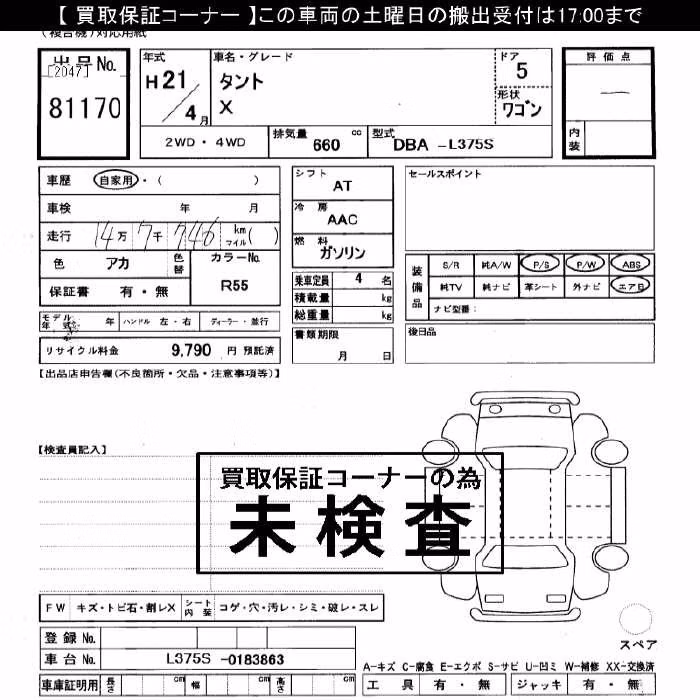 【 買取保証コーナー 】この車両の土曜日の搬出受付は17:00まで
(複合機)対応用紙
出品No.
[2047]
81170
年式
H21
4月
車名・グレード
タント
X
ドア
5
形状
ワゴン
評価点
―
内装
2WD・4WD
排気量 660 cc
型式 DBA -L375S
車歴 自家用・( )
車検 年 月
走行 14万7千746 km マイル( )
色 アカ 色替
カラーNo.
R55
保証書 有・無
モデル年式 年 ハンドル 左・右 ディーラー・並行
リサイクル料金 9,790 円 預託済
シフト
AT
冷房
AAC
燃料
ガソリン
乗車定員 4 名
積載量 kg
総重量 kg
書類期限
月 日
セールスポイント
装備品
S/R 純A/W P/S P/W ABS
純TV 純ナビ 革シート 外ナビ エアB
ナビ型番:
後日品
【出品店申告欄(不良箇所・欠品・注意事項等)】
【検査員記入】
買取保証コーナーの為
未検査
FW キズ・トビ石・割レX シート内装 コゲ・穴・汚レ・シミ・破レ・スレ
登録No.
車台No. L375S -0183863
車庫証明用 長さ cm 幅 cm 高さ cm
スペア
A-キズ C-腐食 E-エクボ S-サビ U-凹ミ W-補修 XX-交換済
工具 有・無 ジャッキ 有・無